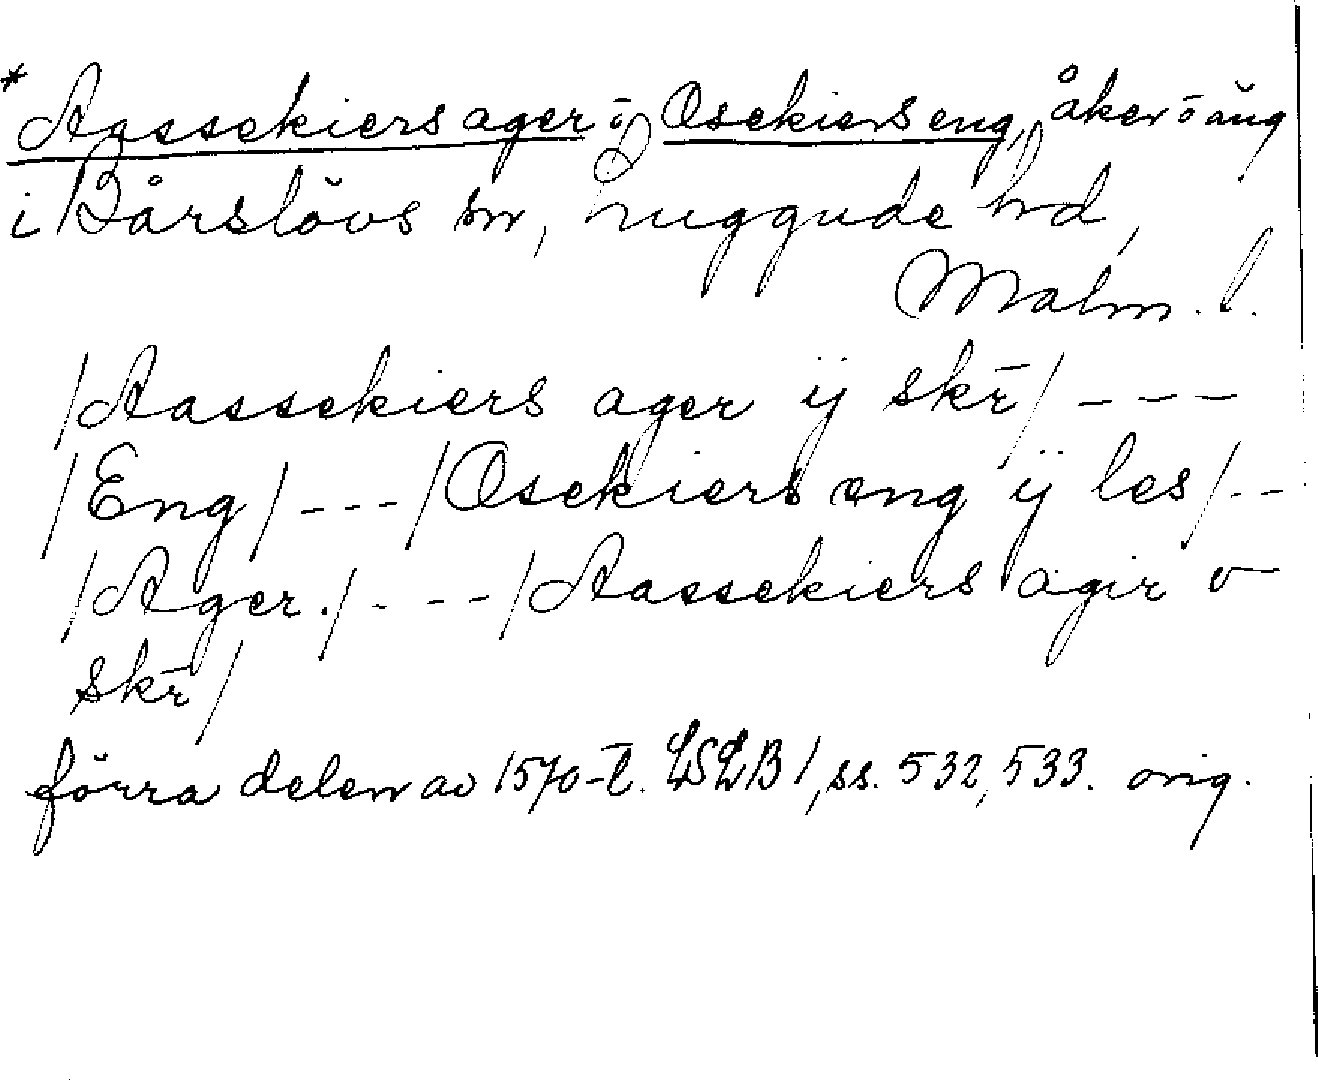 * Aassekiers ager o Osekiers eng, åker o äng
i Bårslövs sn, Luggude hd,
Malm. l.
/Aassekiers ager ij skr̄/ ---
/Eng/ ---/Osekiers eng ij les/--
/Ager./ ---/Aassekiers agir v
skr̄/
förra delen av 1570-t. LSLB 1, ss. 532, 533. orig.